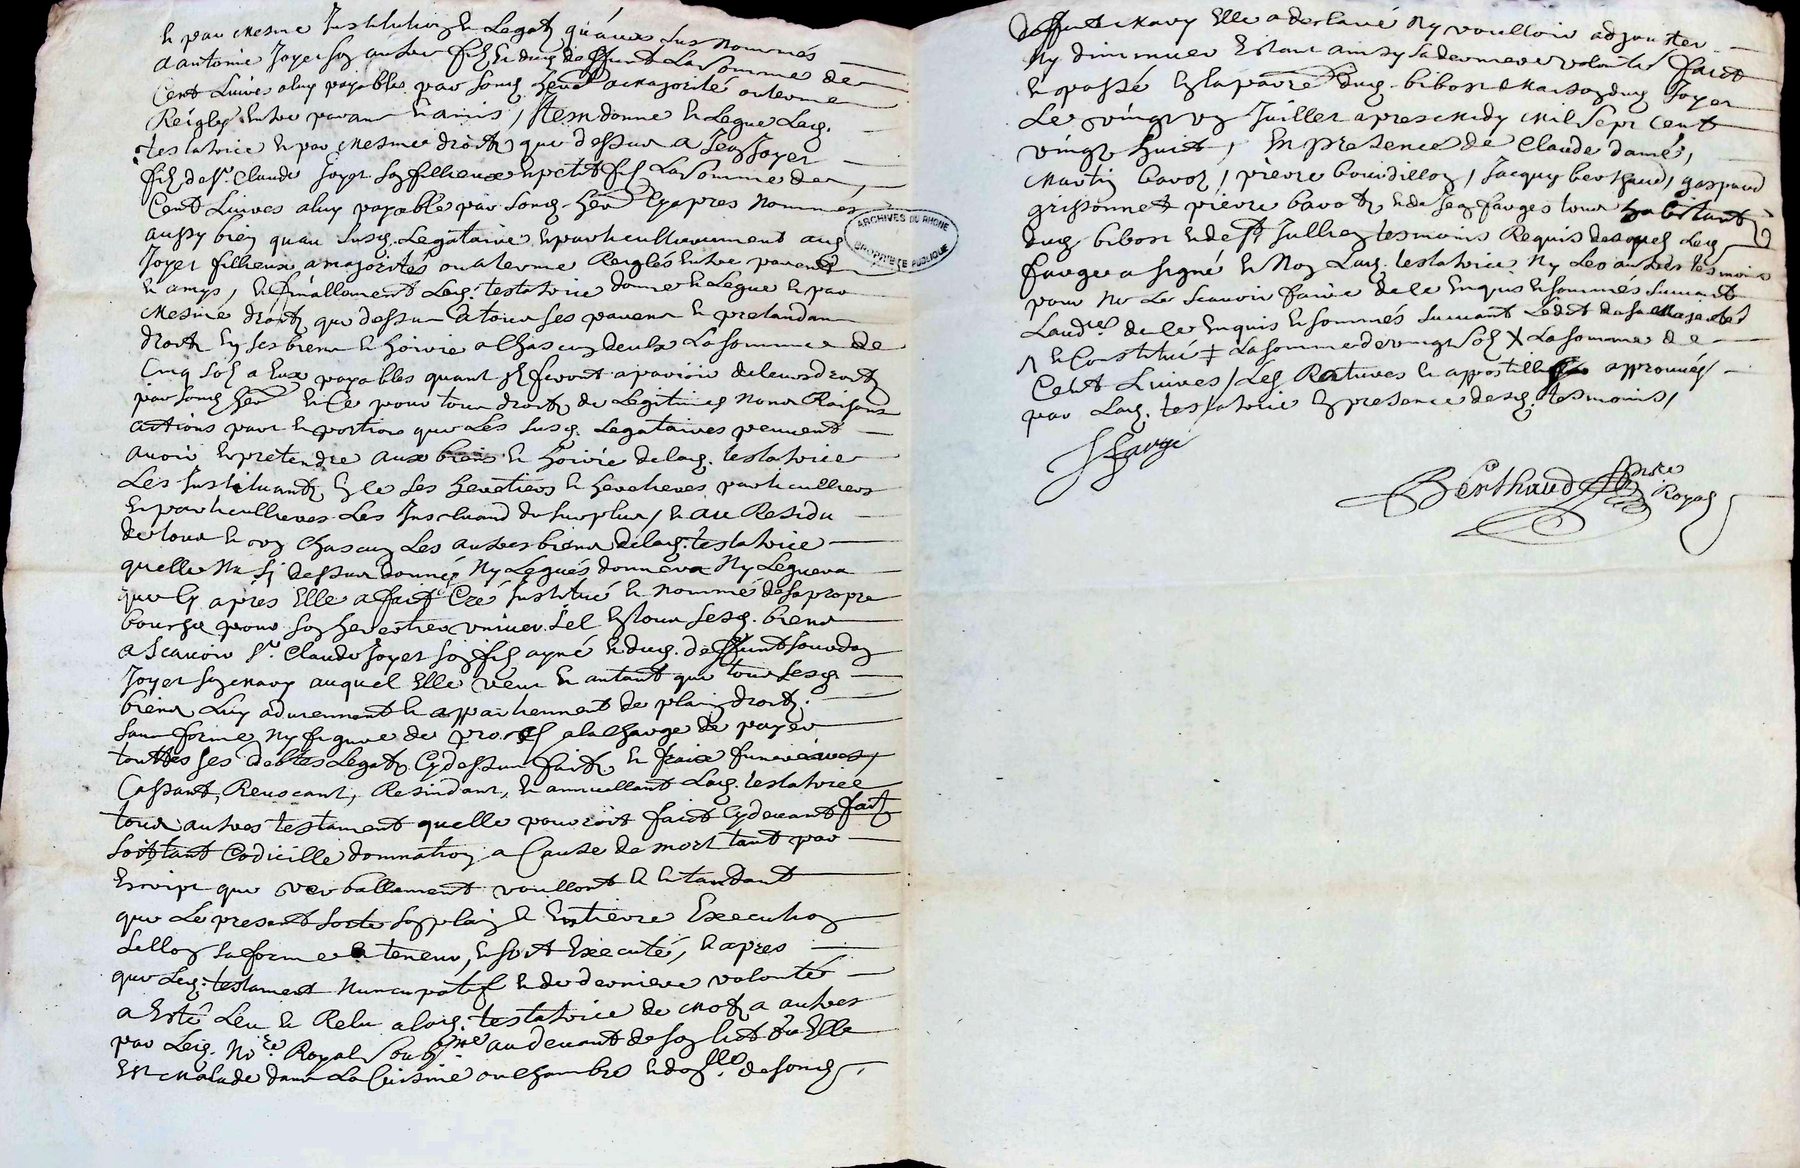 et par mesme Institution et Legatz qu'aux sus nommés
a antoine Joyet son autre filz et dud. deffunt La somme de
Cent Livres a luy payable par sond. herer a majorité ou terme
Reiglez entre parans et amis, Item donne et Legue Lad.
testatrice et par mesme droitz que dessus a Jean Joyet
filz de Sr. Claude Joyet son fillieux et petit filz La somme de
Cent Livres a luy payable par sond. herer Cy apres nommes
aussy bien quau susd. Legataire et particullierement aud.
Joyet fillieux a majorités ou a terme Reiglés entre parents
et amys, et finallement Lad. testatrice donne et Legue et par
mesme droitz que dessus a tous ses parens et pretandans
droitz en ses biens et hoirie a Chascun deulx La somme de
Cinq solz a eux payables quant ilz feront aparoir de leurs droitz
par sond. herer et Ce pour tous droitz de Legitimes noms Raisons
actions part et portion que Les susd. Legataires peuvent
avoir et pretendre aux biens et hoirie de lad. testatrice
Les Instituantz en ce ses heretiers et heretieres particulliers
et particullieres Les Jnscluand du surplus, et au Residu
de tous et un chascun Les autres biens de lad. testatrice
quelle na sy dessus donnés ny Legués donnera ny Leguera
que Cy aprés Elle a fait Cré Institué et nommé de sa propre
bouche pour son heretier univer.sel en tous sesd. biens
a scavoir Sr. Claude Joyet son filz ayné et dud. deffunt
Joyet son mary auquel Elle veut et entant que tous sesd.
biens Luy advienment et appartiennent de plain droitz
sans forme ny figure de proces a la charge de payer
touttes ses debtes Legatz Cy dessus faitz et fraix funeraires,
Cassant, Revocant, Resindant, et annullant Lad. testatrice
tous autres testament quelle pourroit faict Cy devant faitz
soit tant Codicille donnation a Cause de mort tant par
Escript que verballement voullant et entandant
que Le present sorte son plain et Entiere Execution
sellon sa forme et teneur, et soit Executé, et apres
que Led. testament nuncupatif et de derniere volonté
a Esté Leu et Relu a lad. testatrice de motz a autres
par Led. Nore. Royal soubsne au devant de son lict ou Elle
Est malade dans La Cuisine ou chambre de sond.
ARCHIVES DU RHONE
PROPRIÉTÉ PUBLIQUE
deffunt mary Elle a declairé ny voulloir adjouster
ny diminuer Estant ainsy sa derniere volonté faict
et passé En la parre dud. bibost maison dud. Joyet
Le vingt un Juillet apres midy mil sept cent
vingt huict, En presence de Claude damé,
martin bavoz, pierre bourdillon, Jacques berthaud, gaspard
grissonnet pierre bavotz et de Jean farges tous habitant
dud. bibost et de St Jullien tesmoins Requis desquels Led.
farge a signé et non Lad. testatrice ny Les autres tesmoins
pour ne Le scavoir faire de ce enquis et sommés suivant
Laud.re de ce enquis et sommés suivant Ledit de sa Majesté
et Constitué ‡ La somme de vingt solz X La somme de
Cent Livres / Les Ratures et appostilles approuvés
par Lad. testatrice En presance desd. tesmoins,
J farge
Berthaud Nore Royal